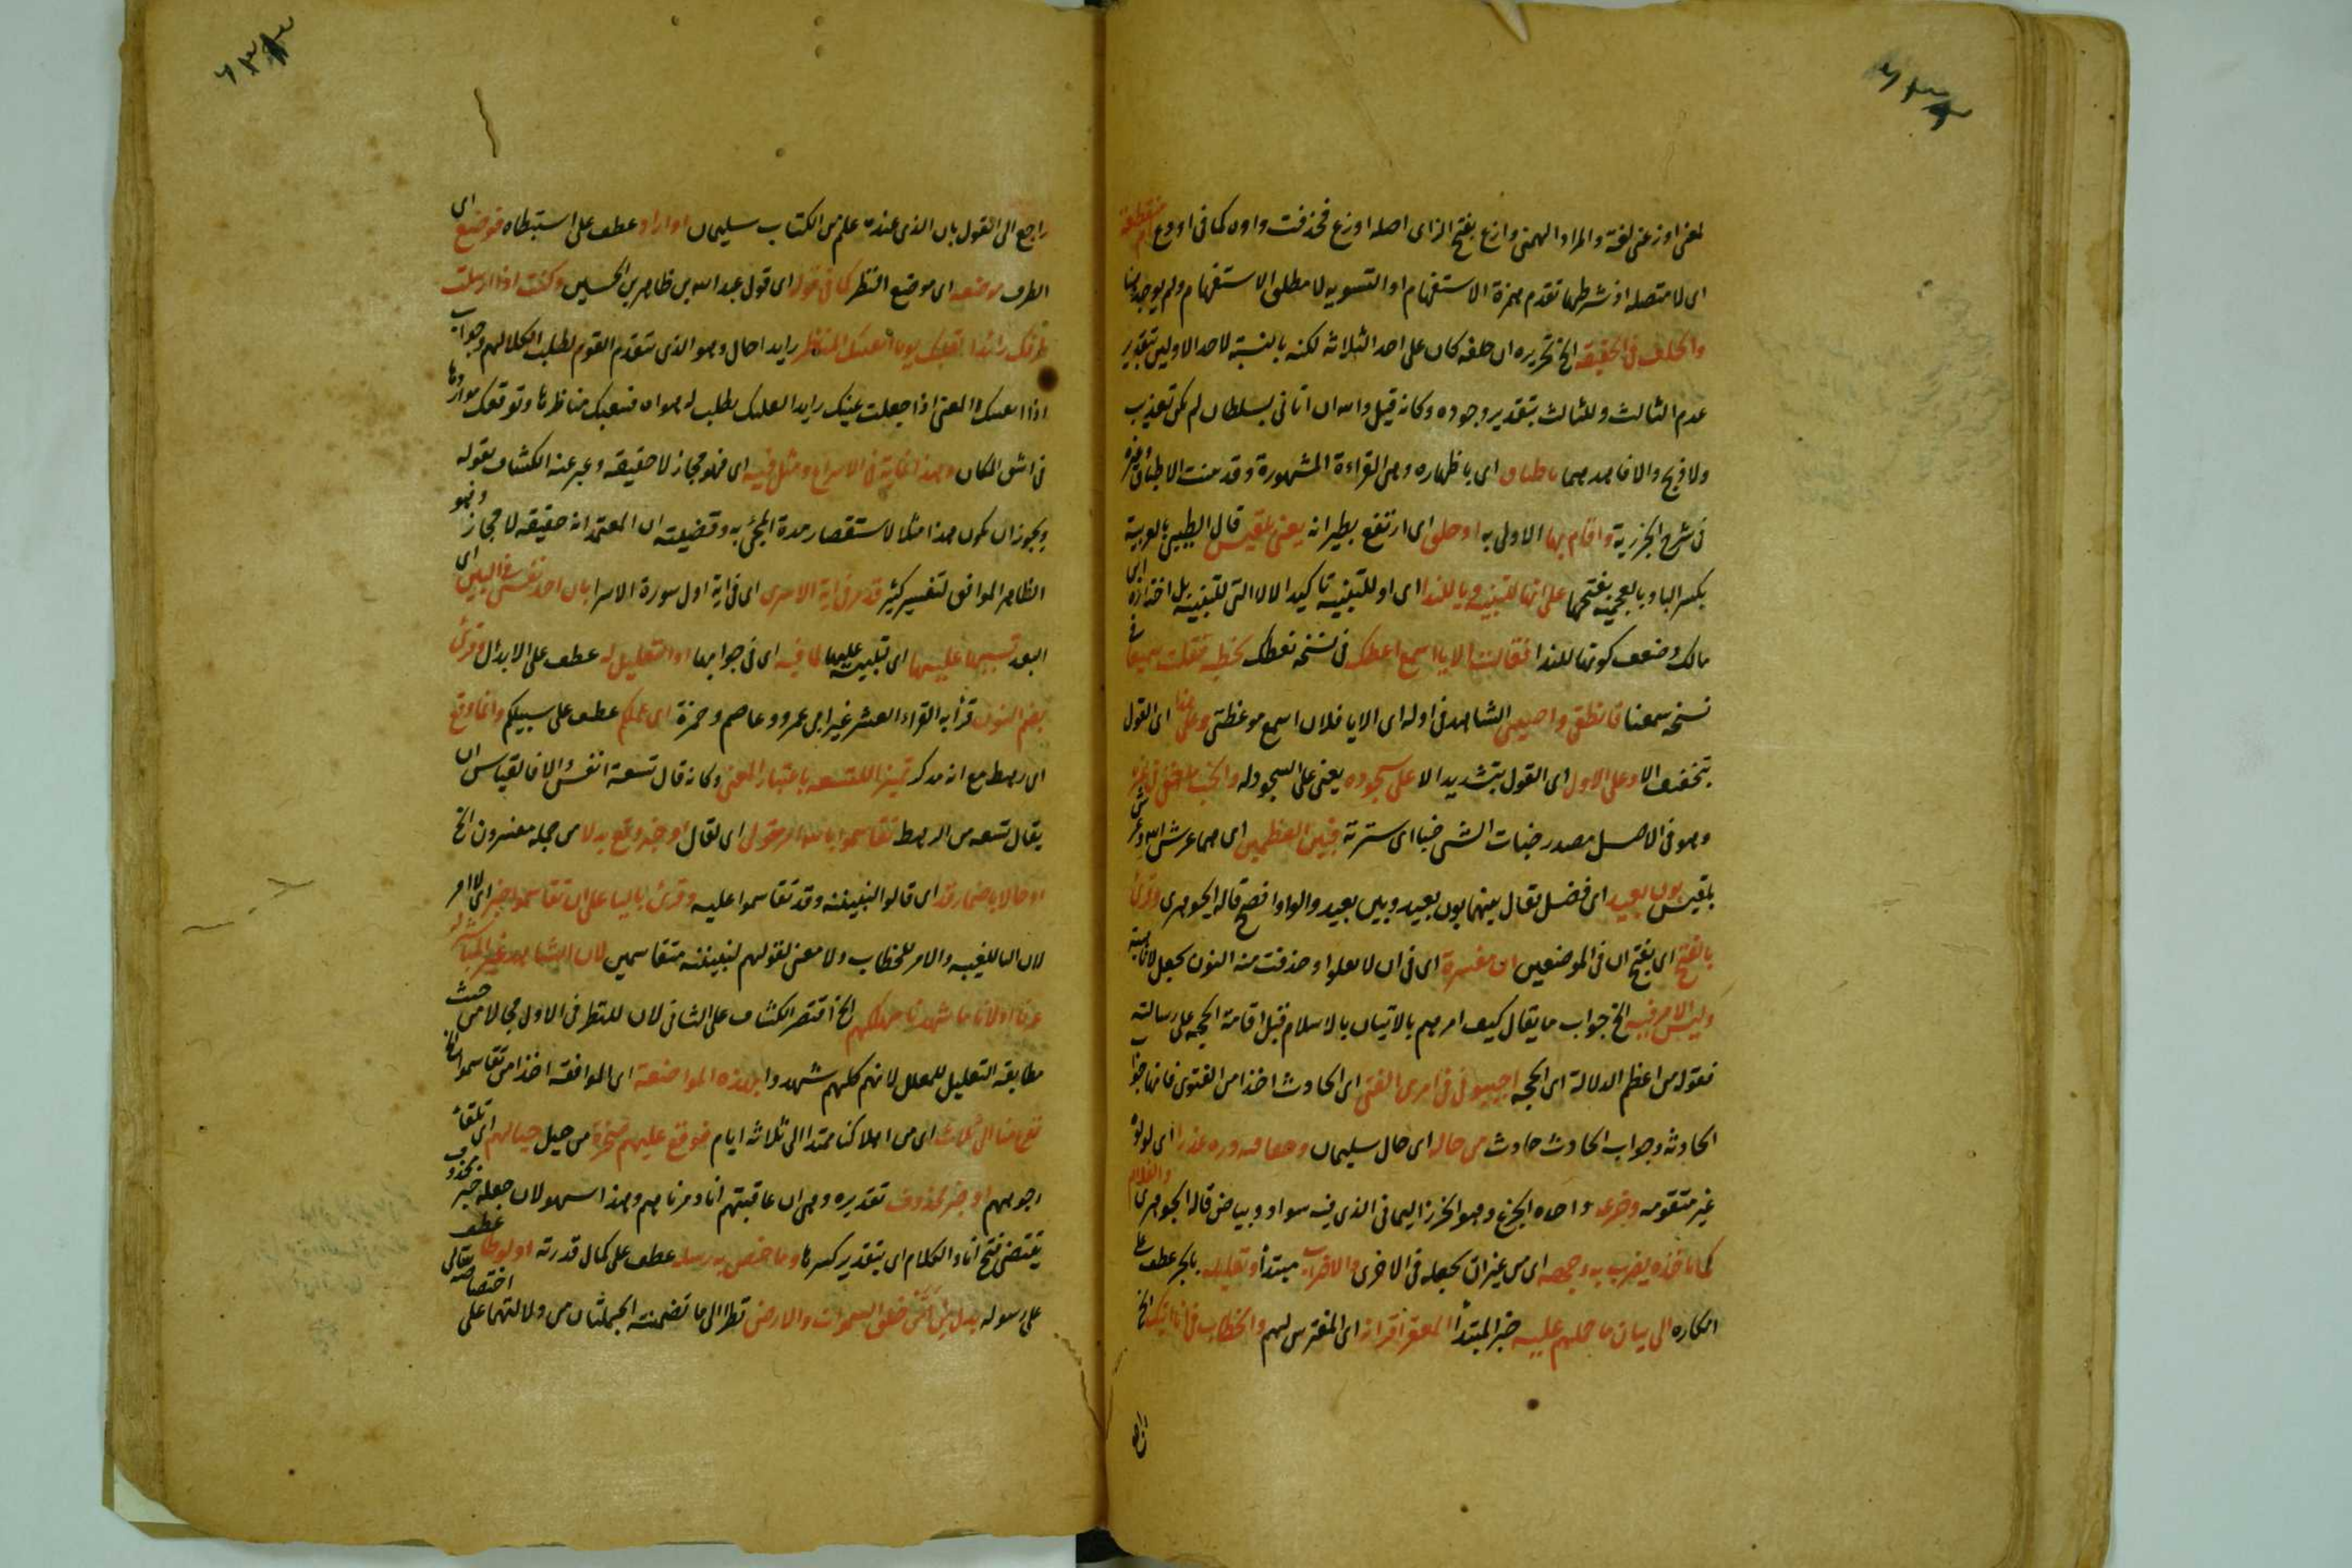 لمعنى اوزعنى لغة والمراد الهمنى وازع بفتح الزاى اصله اوزع فحذفت واوه كما فى اودع ام منقطعة
اى لا متصلة اذ شرطها تقدم همزة الاستفهام او التسوية لا مطلق الاستفهام ولم يوجد هنا
والحلف فى الحقيقة الخ تحريره ان حلفه كان على احد الثلاثة لكنه بالنسبة لاحد الاولين بتقدير
عدم الثالث وللثالث بتقدير وجوده وكانه قيل والله ان اتانى بسلطان لم يكن تعذيب
ولا ذبح والا فاحدهما باطباق اى باظهاره وهى القراءة المشهورة وقد بينت الاطباق وغيره
فى شرح الجزرية واقام بها الاولى به او حلق اى ارتفع بطيرانه يعنى بلقيس قال الطيبى بالعربية
بكسر الباء وبالعجمية بفتحها على انها للتنبيه ويا للندا اى او للتنبيه تاكيدا لالا التى للتنبيه بل اختاره ابن
مالك وضعف كونها للندا فقالت الا يا اسمع اعظك فى نسخة نعظك بخطبه فقلت سميعا فى
نسخة سمعنا فانطقى واصيبى الشاهد فى اوله اى الا يا فلان اسمع موعظتى وعلى هذا اى القول
بتخفيف الا وعلى الاول اى القول بتشديد الا على سجوده يعنى على السجود له والخبأ
وهو فى الاصل مصدر خبات الشى خبا اى سترته فبين العظمين اى هما عرش الله وعرش
بلقيس بون بعيد اى فضل يقال بينهما بون بعيد وبين بعيد والواو افصح قاله الجوهرى وقرئ
بالفتح اى بفتح ان فى الموضعين ان مفسرة اى فى ان لا تعلوا وحذفت منه النون بجعل لا ناهية
وليس الامر فيه الخ جواب ما يقال كيف امرهم بالاتيان بالاسلام قبل اقامة الحجة على رسالته
فقوله من اعظم الدلالة اى الحجة اجيبونى فى امرى الفتى اى الحادث اخذا من الفتوى فانها جواب
الحادثة وجواب الحادث حادث من حاله اى حال سليمان وحقا فيه درة عذرا اى لولوة
غير مثقوبة وجزعة واحدة الجزع وهو الخرز اليمانى الذى فيه سواد وبياض قاله الجوهرى والغلام
كما ياخذه يضرب به وجهه اى من غير ان يجعله فى الاخرى والاضراب مبتدأ وتعليله بالجر عطف على
انكاره الى بيان ما حملهم عليه خبر المبتدأ المعفر اقرانه اى المفترس لهم والخطاب فى انا آتيك الخ
راجع الى القول بان الذى عنده علم من الكتاب سليمان او اراد عطف على استبطاه فوضع اى
الطرف موضعه اى موضع النظر كما فى قوله اى قول عبد الله بن طاهر بن الحسين وكنت اذا ارسلت
طرفك رائدا لقلبك يوما اتعبتك المناظر رايدا حال وهو الذى يتقدم القوم لطلب الكلا لهم وجواب
اذا اتعبتك والمعنى اذا جعلت عينك رايدا لقلبك يطلب له هواه فتتعبك مناظرها وتوقعك مواردها
فى اشق المكان وهذا غاية فى الاسراع ومثل فيه اى فهو مجاز لا حقيقة وعبر عنه الكشاف بقوله
ويجوز ان يكون هذا مثلا لاستقصار مدة المجئ به وقضيته ان المعتمد انه حقيقة لا مجاز وهو
الظاهر الموافق لتفسير كثير قد مر فى آية الاسرى اى فى اية اول سورة الاسرا بان احد
البعد تنبيها عليها اى تلبيسه عليها لما فيه اى فى جوابها او التعليل له عطف على الابدال وقرئ
بضم النون قرأ به القراء العشر غير ابى عمرو وعاصم وحمزة اى عملكم عطف على سبيلكم وانما وقع
اى رهط مع انه مذكر تمييزا للتسعة باعتبار المعنى وكانه قال تسعة انفس والا فالقياس ان
يقال تسعة من الرهط تقاسموا بالله امر مقول اى لقال او خبر وقع بدلا من جملة مفسرون الخ
او حالا باضمار قد اى قالوا لنبيتنه وقد تقاسموا عليه وقرئ بالياء على ان تقاسموا خبر اى لا امر
لان اليا للغيبة والامر للخطاب ولا معنى لقولهم لنبيتنه متقاسمين لان الشاهد غير المباشر له
عرفا اولانا ما شهدنا مهلكهم الخ اقتصر الكشاف على الثانى لان للنظر فى الاول مجالا من حيث
مطابقة التعليل للمعلل لانهم كلهم شهدوا بهذه المواضعة اى الموافقة اخذا من تقاسموا الخ
نفرغ منا الى ثلاث اى من اهلاكنا ممتدا الى ثلاثة ايام فوقع عليهم صخرة من جبل حيالهم اى تلقاء
وجوههم او خبر محذوف تقديره وهى ان عاقبتهم انا دمرناهم وهذا سهو لان جعله خبر محذوف
يقتضى فتح انا والكلام اى بتقدير كسرها وما خص به رسله عطف على كمال قدرته او لوطا عطف
على رسوله بدل من امن خلق السموات والارض نظرا الى ما تضمنته الجملتان من دلالتهما على اختصاصه تعالى